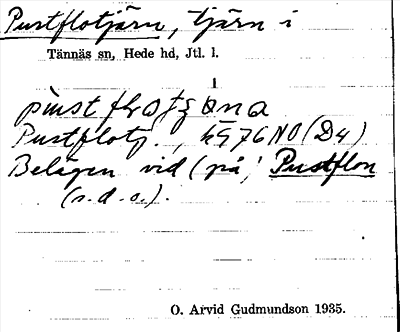 Pustflotjärn, tjärn i
Tännäs sn, Hede hd, Jtl. l.
Pustflotj., k 76 NO (D4)
Belägen vid (på) Pustflon
(s.d.o.).
O. Arvid Gudmundson 1935.